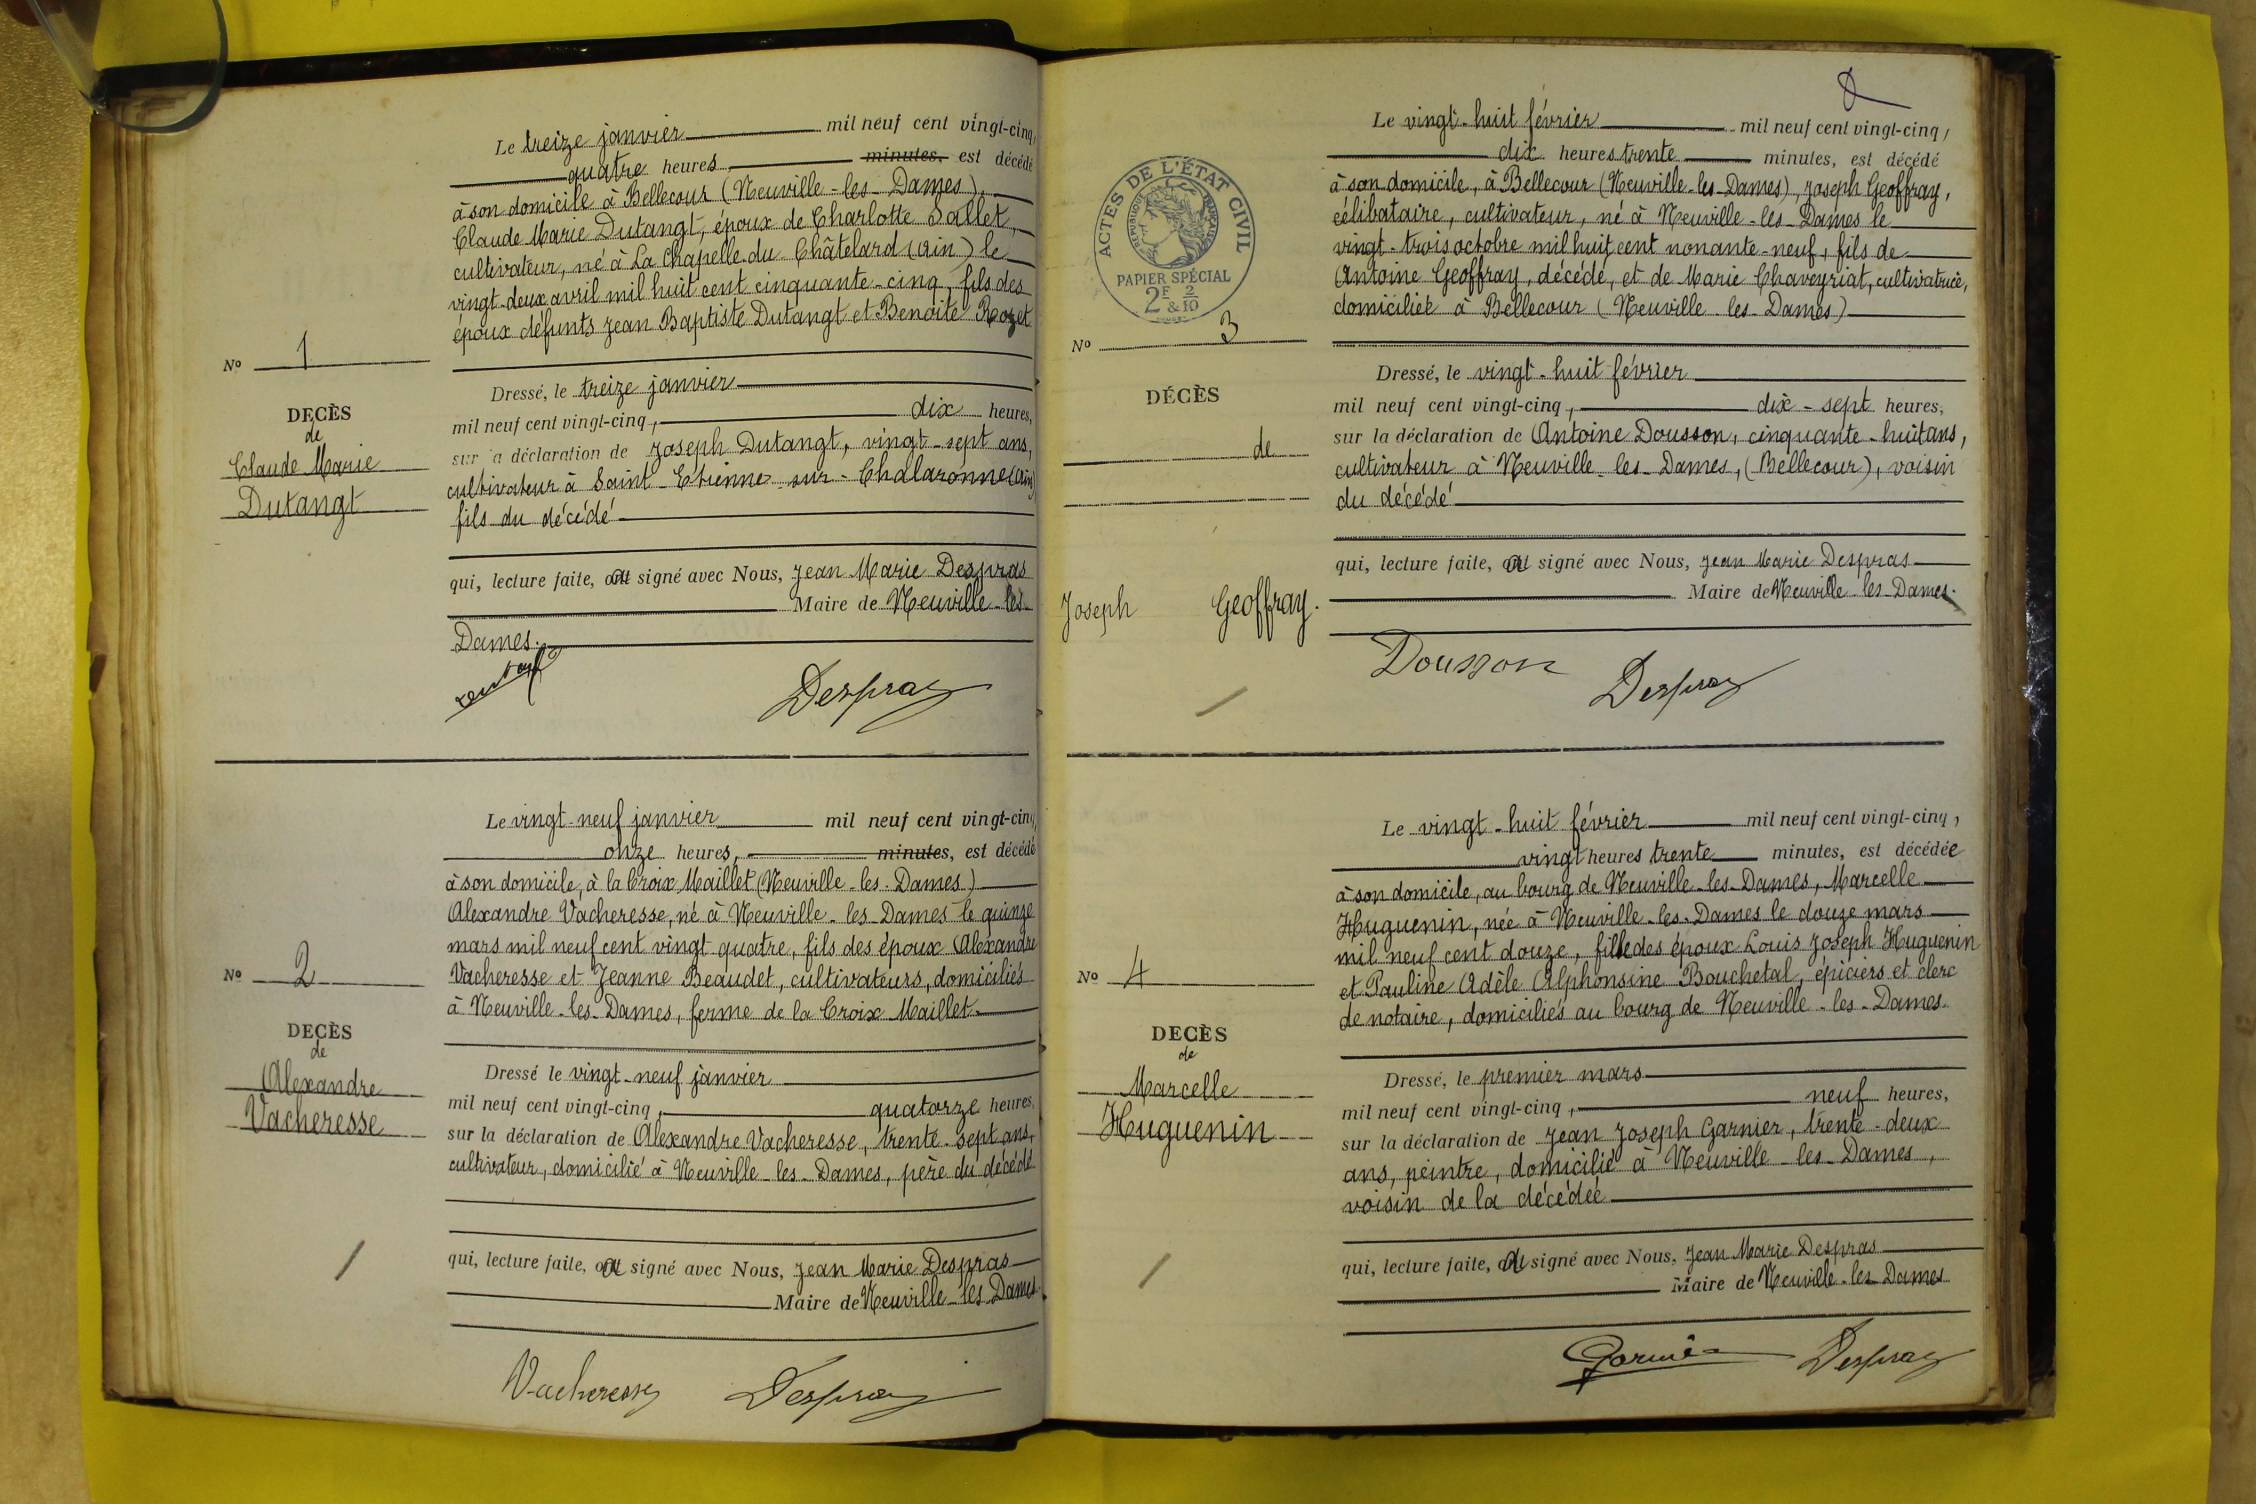 Le treize janvier mil neuf cent vingt-cinq,
quatre heures, minutes, est décédé
à son domicile à Bellecour (Neuville-les-Dames),
Claude Marie Dutangt, époux de Charlotte Sallet,
cultivateur, né à La Chapelle-du-Châtelard (Ain) le
vingt-deux avril mil huit cent cinquante-cinq, fils des
époux défunts Jean Baptiste Dutangt et Benoîte Rozet
No 1
DECÈS
de
Claude Marie
Dutangt
Dressé, le treize janvier
mil neuf cent vingt-cinq, dix heures,
sur la déclaration de Joseph Dutangt, vingt-sept ans,
cultivateur à Saint-Etienne-sur-Chalaronne (Ain)
fils du décédé
qui, lecture faite, a signé avec Nous, Jean Marie Despras
Maire de Neuville-les-
Dames.
Despras
Le vingt-neuf janvier mil neuf cent vingt-cinq,
onze heures, minutes, est décédé
à son domicile, à la Croix Maillet (Neuville-les-Dames)
Alexandre Vacheresse, né à Neuville-les-Dames le quinze
mars mil neuf cent vingt quatre, fils des époux Alexandre
Vacheresse et Jeanne Beaudet, cultivateurs, domiciliés
à Neuville-les-Dames, ferme de la Croix Maillet
No 2
DECÈS
de
Alexandre
Vacheresse
Dressé le vingt-neuf janvier
mil neuf cent vingt-cinq, quatorze heures,
sur la déclaration de Alexandre Vacheresse, trente-sept ans,
cultivateur, domicilié à Neuville-les-Dames, père du décédé
qui, lecture faite, a signé avec Nous, Jean Marie Despras
Maire de Neuville-les-Dames.
Vacheresse Despras
Le vingt-huit février mil neuf cent vingt-cinq,
dix heures trente minutes, est décédé
à son domicile, à Bellecour (Neuville-les-Dames), Joseph Geoffray,
célibataire, cultivateur, né à Neuville-les-Dames le
vingt-trois octobre mil huit cent nonante-neuf, fils de
Antoine Geoffray, décédé, et de Marie Chaveyriat, cultivatrice,
domiciliée à Bellecour (Neuville-les-Dames)
ACTES DE L'ÉTAT CIVIL
RÉPUBLIQUE FRANÇAISE
PAPIER SPÉCIAL
2F & 2/10
No 3
DÉCÈS
de
Joseph Geoffray.
Dressé, le vingt-huit février
mil neuf cent vingt-cinq, dix-sept heures,
sur la déclaration de Antoine Dousson, cinquante-huit ans,
cultivateur à Neuville-les-Dames, (Bellecour), voisin
du décédé
qui, lecture faite, a signé avec Nous, Jean Marie Despras
Maire de Neuville-les-Dames.
Dousson Despras
Le vingt-huit février mil neuf cent vingt-cinq,
vingt heures trente minutes, est décédée
à son domicile, au bourg de Neuville-les-Dames, Marcelle
Huguenin, née à Neuville-les-Dames le douze mars
mil neuf cent douze, fille des époux Louis Joseph Huguenin
et Pauline Adèle Alphonsine Bouchetal, épiciers et clerc
de notaire, domiciliés au bourg de Neuville-les-Dames.
No 4
DECÈS
de
Marcelle
Huguenin
Dressé, le premier mars
mil neuf cent vingt-cinq, neuf heures,
sur la déclaration de Jean Joseph Garnier, trente-deux
ans, peintre, domicilié à Neuville-les-Dames,
voisin de la décédée
qui, lecture faite, a signé avec Nous, Jean Marie Despras
Maire de Neuville-les-Dames
Garnier Despras